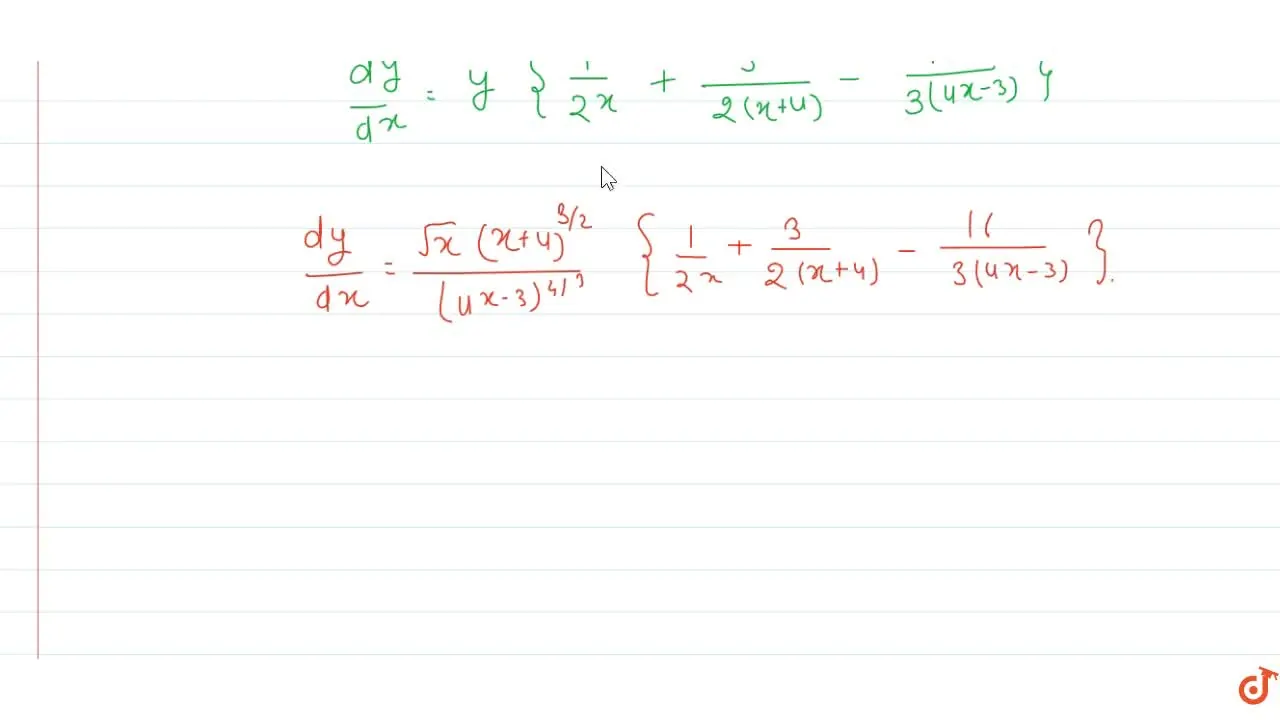 dy/dx = y { 1/2x + 3/2(x+4) - /3(4x-3) }
dy/dx = √x (x+4)^3/2 / (4x-3)^4/3 { 1/2x + 3/2(x+4) - 16/3(4x-3) }.